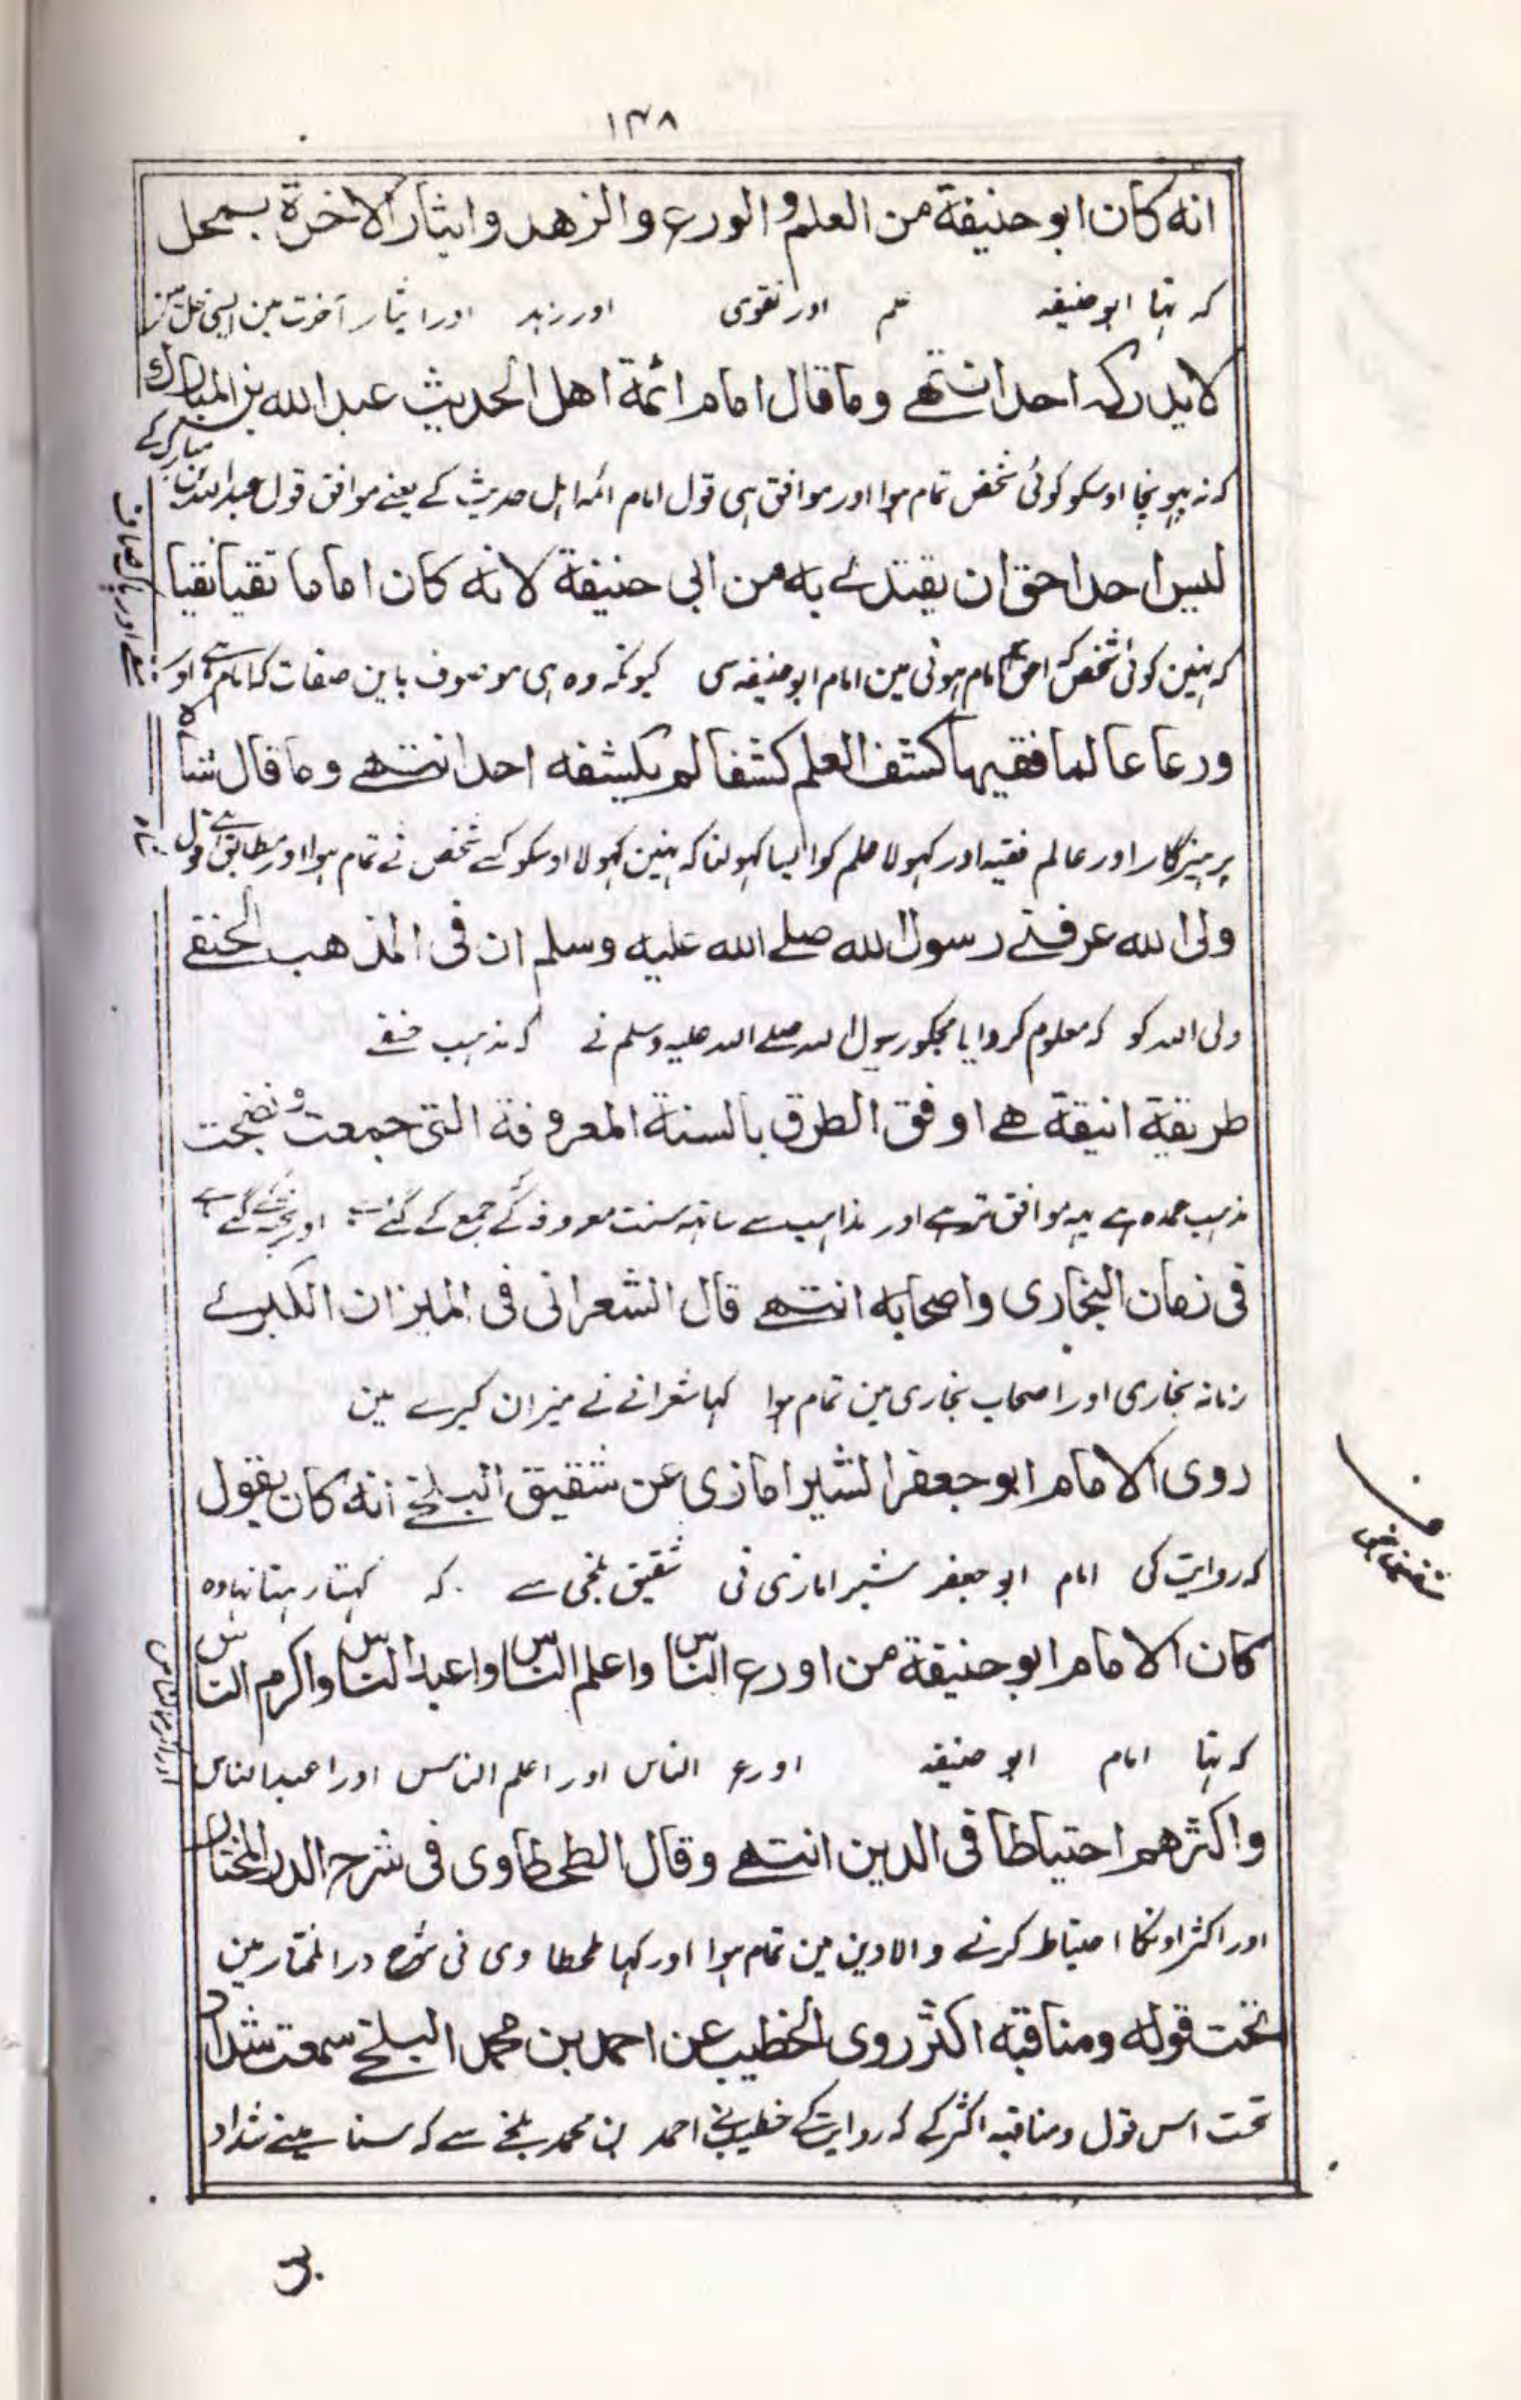 ١٣٨
انه كان ابو حنيفة من العلم و الورع والزهد وايثار الاخرة بمحل
کہ تہا ابو حنیفہ علم اور تقوی اور زہد اور ایثار آخرت مین ایسی محل مین
لا يدركه احد انتهے وما قال امام ائمة اهل الحديث عبد الله بن المبارك
کہ نہ پہونچا اوسکو کوئی شخص تمام ہوا اور موافق ہی قول امام ائمہ اہل حدیث کے یعنے موافق قول عبد اللہ بن مبارک کے
ليس احد احق ان يقتدے به من ابى حنيفة لانه كان اماما تقيا نقيا
کہ نہین کوئی شخص کہ احق امام ہونی مین امام ابو حنیفہ سی کیونکہ وہ ہی موصوف باین صفات کہ امام ہے اور
ورعا عالما فقيها كشف العلم كشفا لم يكشفه احد انتهے وما قال شاه
پرہیزگار اور عالم فقیہ اور کہولا علم کو ایسا کہولنا کہ نہین کہولا اوسکو کسے شخص نے تمام ہوا اور مطابق ہے قول
ولى الله عرفنے رسول الله صلے الله عليه وسلم ان فى المذهب الحنفے
ولی اللہ کو کہ معلوم کروایا مجکو رسول اللہ صلے اللہ علیہ وسلم نے کہ مذہب حنفے
طريقة انيقة هے اوفق الطرق بالسنة المعروفة التى جمعت و نضجت
مذہب عمدہ ہے یہہ موافق تر ہے اور مذاہب سے ساتہہ سنت معروفہ کے جمع کے گئے ہے اور پختہ کے گئے ہے
فى زمان البخارى واصحابه انتهے قال الشعرانى فى الميزان الكبرے
زمانہ بخاری اور اصحاب بخاری مین تمام ہوا کہا شعرانے نے میزان کبرے مین
روى الامام ابو جعفر الشيرامازى عن شقيق البلخے انه كان يقول
کہ روایت کی امام ابو جعفر شیرامازی نی شقیق بلخی سے کہ کہتا رہتا تہا وہ
كان الامام ابو حنيفة من اورع الناس واعلم الناس واعبد الناس واكرم الناس
کہ تہا امام ابو حنیفہ اورع الناس اور اعلم الناس اور اعبد الناس
واكثرهم احتياطا فى الدين انتهے وقال الطحطاوى فى شرح الدر المختار
اور اکثر اونکا احتیاط کرنے والا دین مین تمام ہوا اور کہا طحطاوی نی شرح در المختار مین
تحت قوله ومناقبه اكثر روى الخطيب عن احمد بن محمد البلخے سمعت شداد
تحت اس قول ومناقبہ اکثر کے کہ روایت کے خطیب نے احمد بن محمد بلخے سے کہ سنا ہے مینے شداد
بن